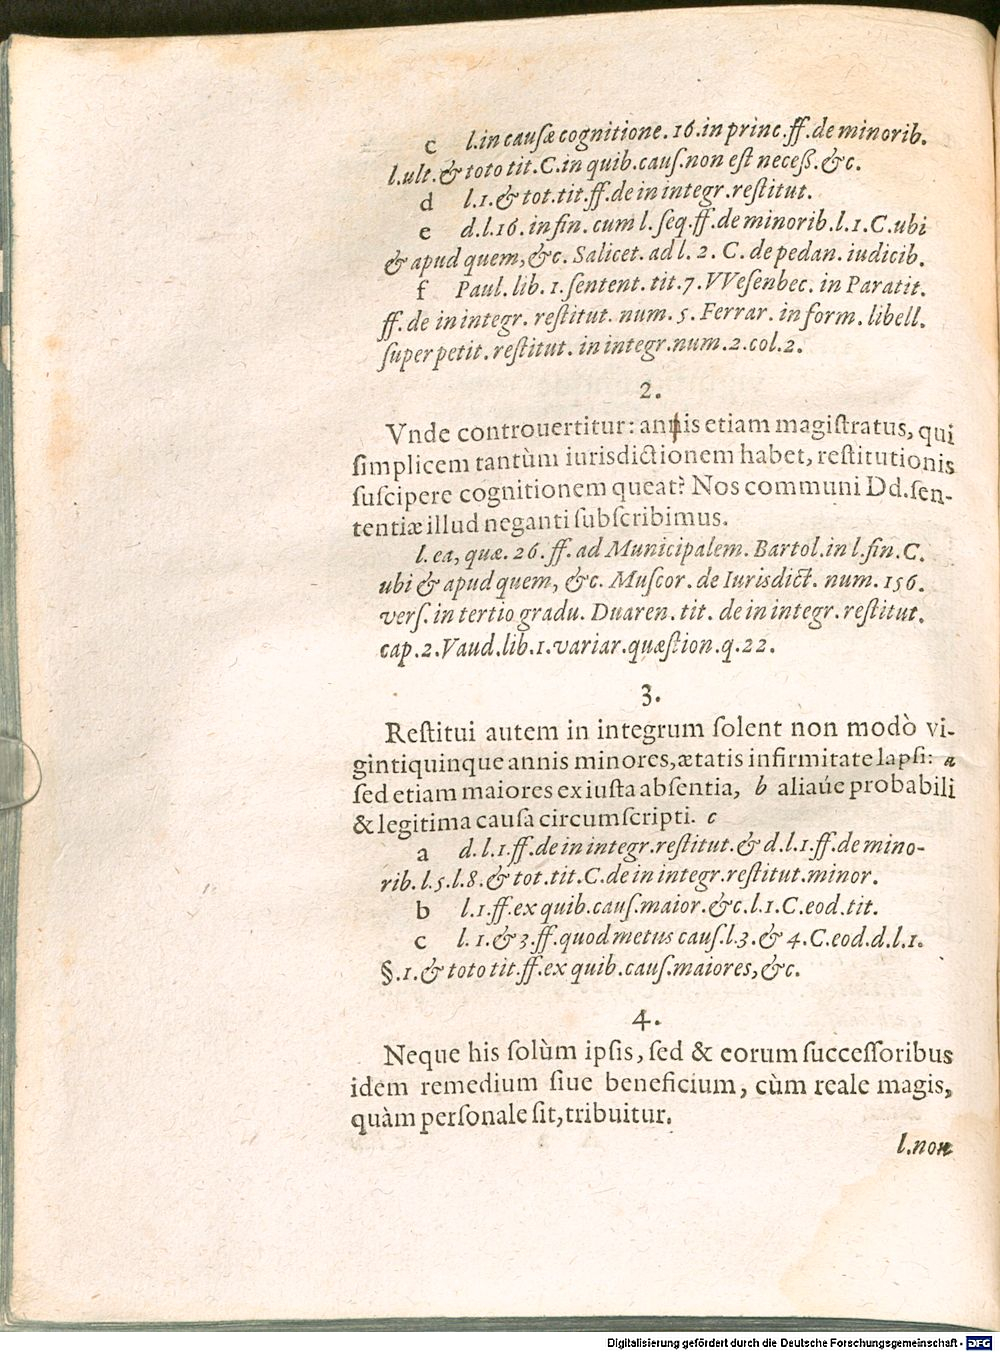 c l.in causæ cognitione. 16. in princ. ff. de minorib.
l.ult. & toto tit. C. in quib. caus. non est neceß. &c.
d l.1. & tot. tit. ff. de in integr. restitut.
e d.l.16. in fin. cum l. seq. ff. de minorib. l.1. C. ubi
& apud quem, &c. Salicet. ad l. 2. C. de pedan. iudicib.
f Paul. lib. 1. sentent. tit. 7. VVesenbec. in Paratit.
ff. de in integr. restitut. num. 5. Ferrar. in form. libell.
super petit. restitut. in integr. num. 2. col. 2.
2.
Vnde controuertitur: an is etiam magistratus, qui
simplicem tantùm iurisdictionem habet, restitutionis
suscipere cognitionem queat? Nos communi Dd. sen-
tentiæ illud neganti subscribimus.
l. ea, quæ. 26. ff. ad Municipalem. Bartol. in l. fin. C.
ubi & apud quem, &c. Muscor. de Iurisdict. num. 156.
vers. in tertio gradu. Duaren. tit. de in integr. restitut.
cap. 2. Vaud. lib. 1. variar. quæstion. q. 22.
3.
Restitui autem in integrum solent non modò vi-
gintiquinque annis minores, ætatis infirmitate lapsi: a
sed etiam maiores ex iusta absentia, b aliaúe probabili
& legitima causa circumscripti. c
a d. l. 1. ff. de in integr. restitut. & d. l. 1. ff. de mino-
rib. l. 5. l. 8. & tot. tit. C. de in integr. restitut. minor.
b l. 1. ff. ex quib. caus. maior. &c. l. 1. C. eod. tit.
c l. 1. & 3. ff. quod metus caus. l. 3. & 4. C. eod. d. l. 1.
§. 1. & toto tit. ff. ex quib. caus. maiores, &c.
4.
Neque his solùm ipsis, sed & eorum successoribus
idem remedium siue beneficium, cùm reale magis,
quàm personale sit, tribuitur.
l. non
Digitalisierung gefördert durch die Deutsche Forschungsgemeinschaft - DFG